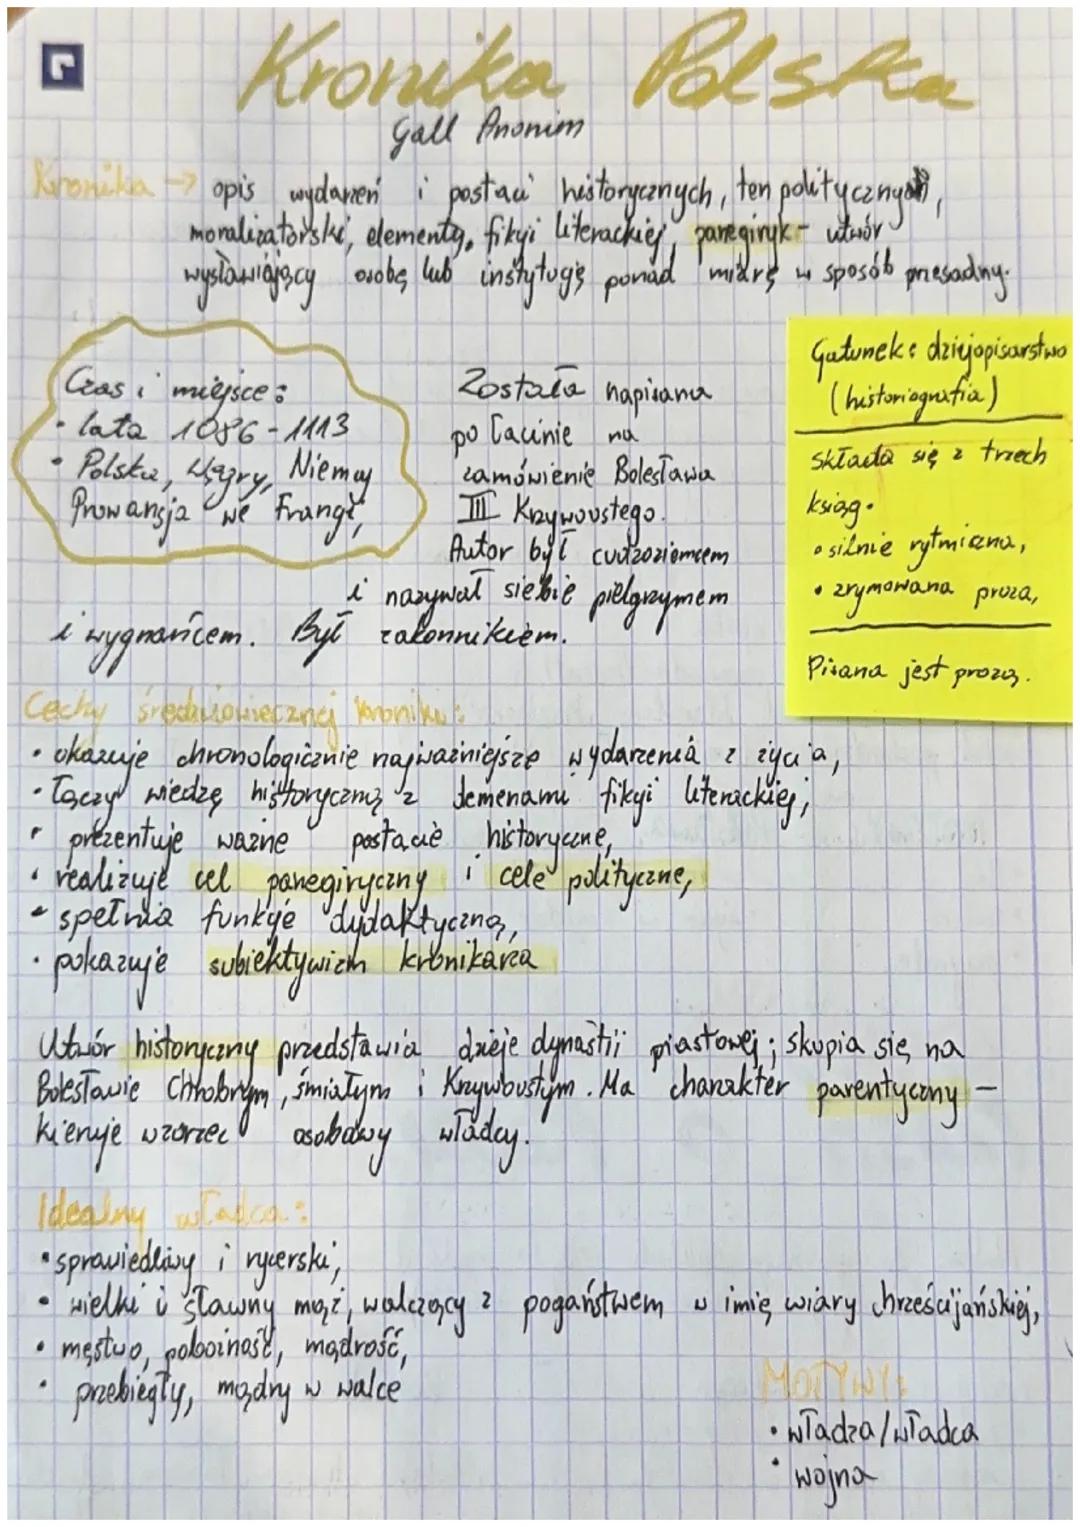 Kronika Polska
Gall Anonim
Kronika → opis wydarzeń i postaci historycznych, ten politycznych,
moralizatorski, elementy, fikcji literackiej, panegiryk - utwór
wysławiający osobę lub instytucję ponad miarę w sposób przesadny.
Czas i miejsce:
• lata 1086-1113
• Polska, Węgry, Niemcy
Prowansja we Francji,
Została napisana
po łacinie na
zamówienie Bolesława
III Krzywoustego.
Autor był cudzoziemcem
i nazywał siebie pielgrzymem
i wygnańcem. Był zakonnikiem.
Gatunek: dziejopisarstwo
(historiografia)
składa się z trzech
ksiąg.
• silnie rytmiczna,
• zrymowana proza,
Pisana jest prozą.
Cechy średniowiecznej kroniki:
• okazuje chronologicznie najważniejsze wydarzenia z życia,
• łączy wiedzę historyczną z elemenami fikcji literackiej,
• prezentuje ważne postacie historyczne,
• realizuje cel panegiryczny i cele polityczne,
• spełnia funkcje dydaktyczną,
• pokazuje subiektywizm kronikarza
Utwór historyczny przedstawia dzieje dynastii piastowej; skupia się na
Bolesławie Chrobrym, śmiałym i Krzywoustym. Ma charakter parentyczny –
kieruje wzorzec osobowy władcy.
Idealny władca:
• sprawiedliwy i rycerski,
• wielki i sławny mąż, walczący z pogaństwem w imię wiary chrześcijańskiej,
• męstwo, pobożność, mądrość,
• przebiegły, mądry w walce
MOTYWY:
• władza/władca
• wojna